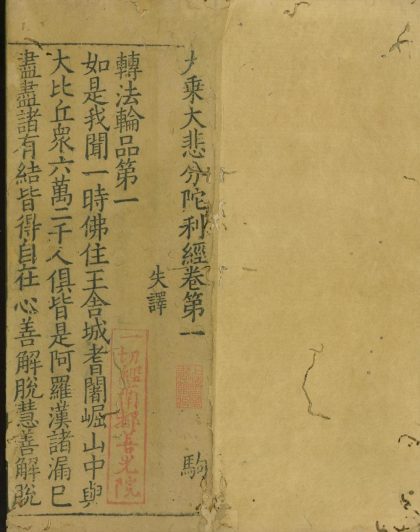 大乗大悲分陀利經卷第一
失譯
駒
轉法輪品第一
如是我聞一時佛住王舍城耆闍崛山中與
大比丘衆六萬二千人俱皆是阿羅漢諸漏已
盡盡諸有結皆得自在心善解脫慧善解脫